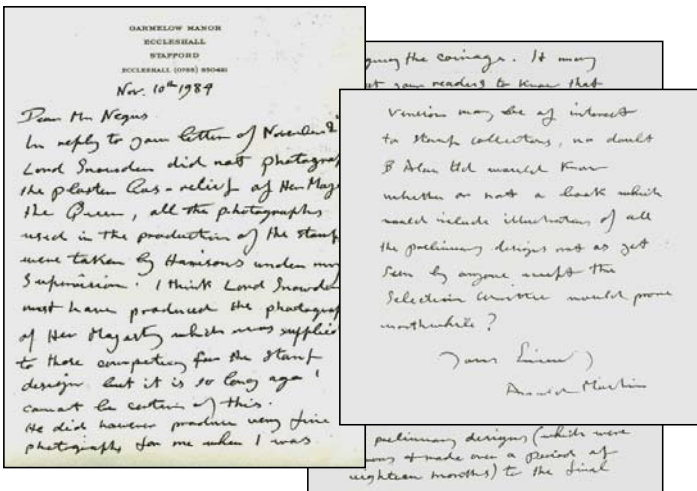 GARMELOW MANOR
ECCLESHALL
STAFFORD
ECCLESHALL (0785) 850421
Nov. 10th 1984
Dear Mr Negus
In reply to your letter of November 2
Lord Snowdon did not photograph
the plaster bas-relief of Her Maje
the Queen, all the photographs
used in the production of the stamp
were taken by Harrisons under my
supervision. I think Lord Snowdon
must have produced the photograph
of Her Majesty which was supplied
to those competing for the stamp
design but it is so long ago I
cannot be certain of this.
He did however produce very fine
photographs for me when I was
the coinage. It may
your readers to know that
versions may be of interest
to stamp collectors, no doubt
B Alan Ltd would know
whether or not a book which
would include illustrations of all
the preliminary designs not as yet
seen by anyone except the
Selection Committee would prove
worthwhile?
Yours Sincerely
Arnold Machin
preliminary designs (which were
made over a period of
eighteen months) to the final